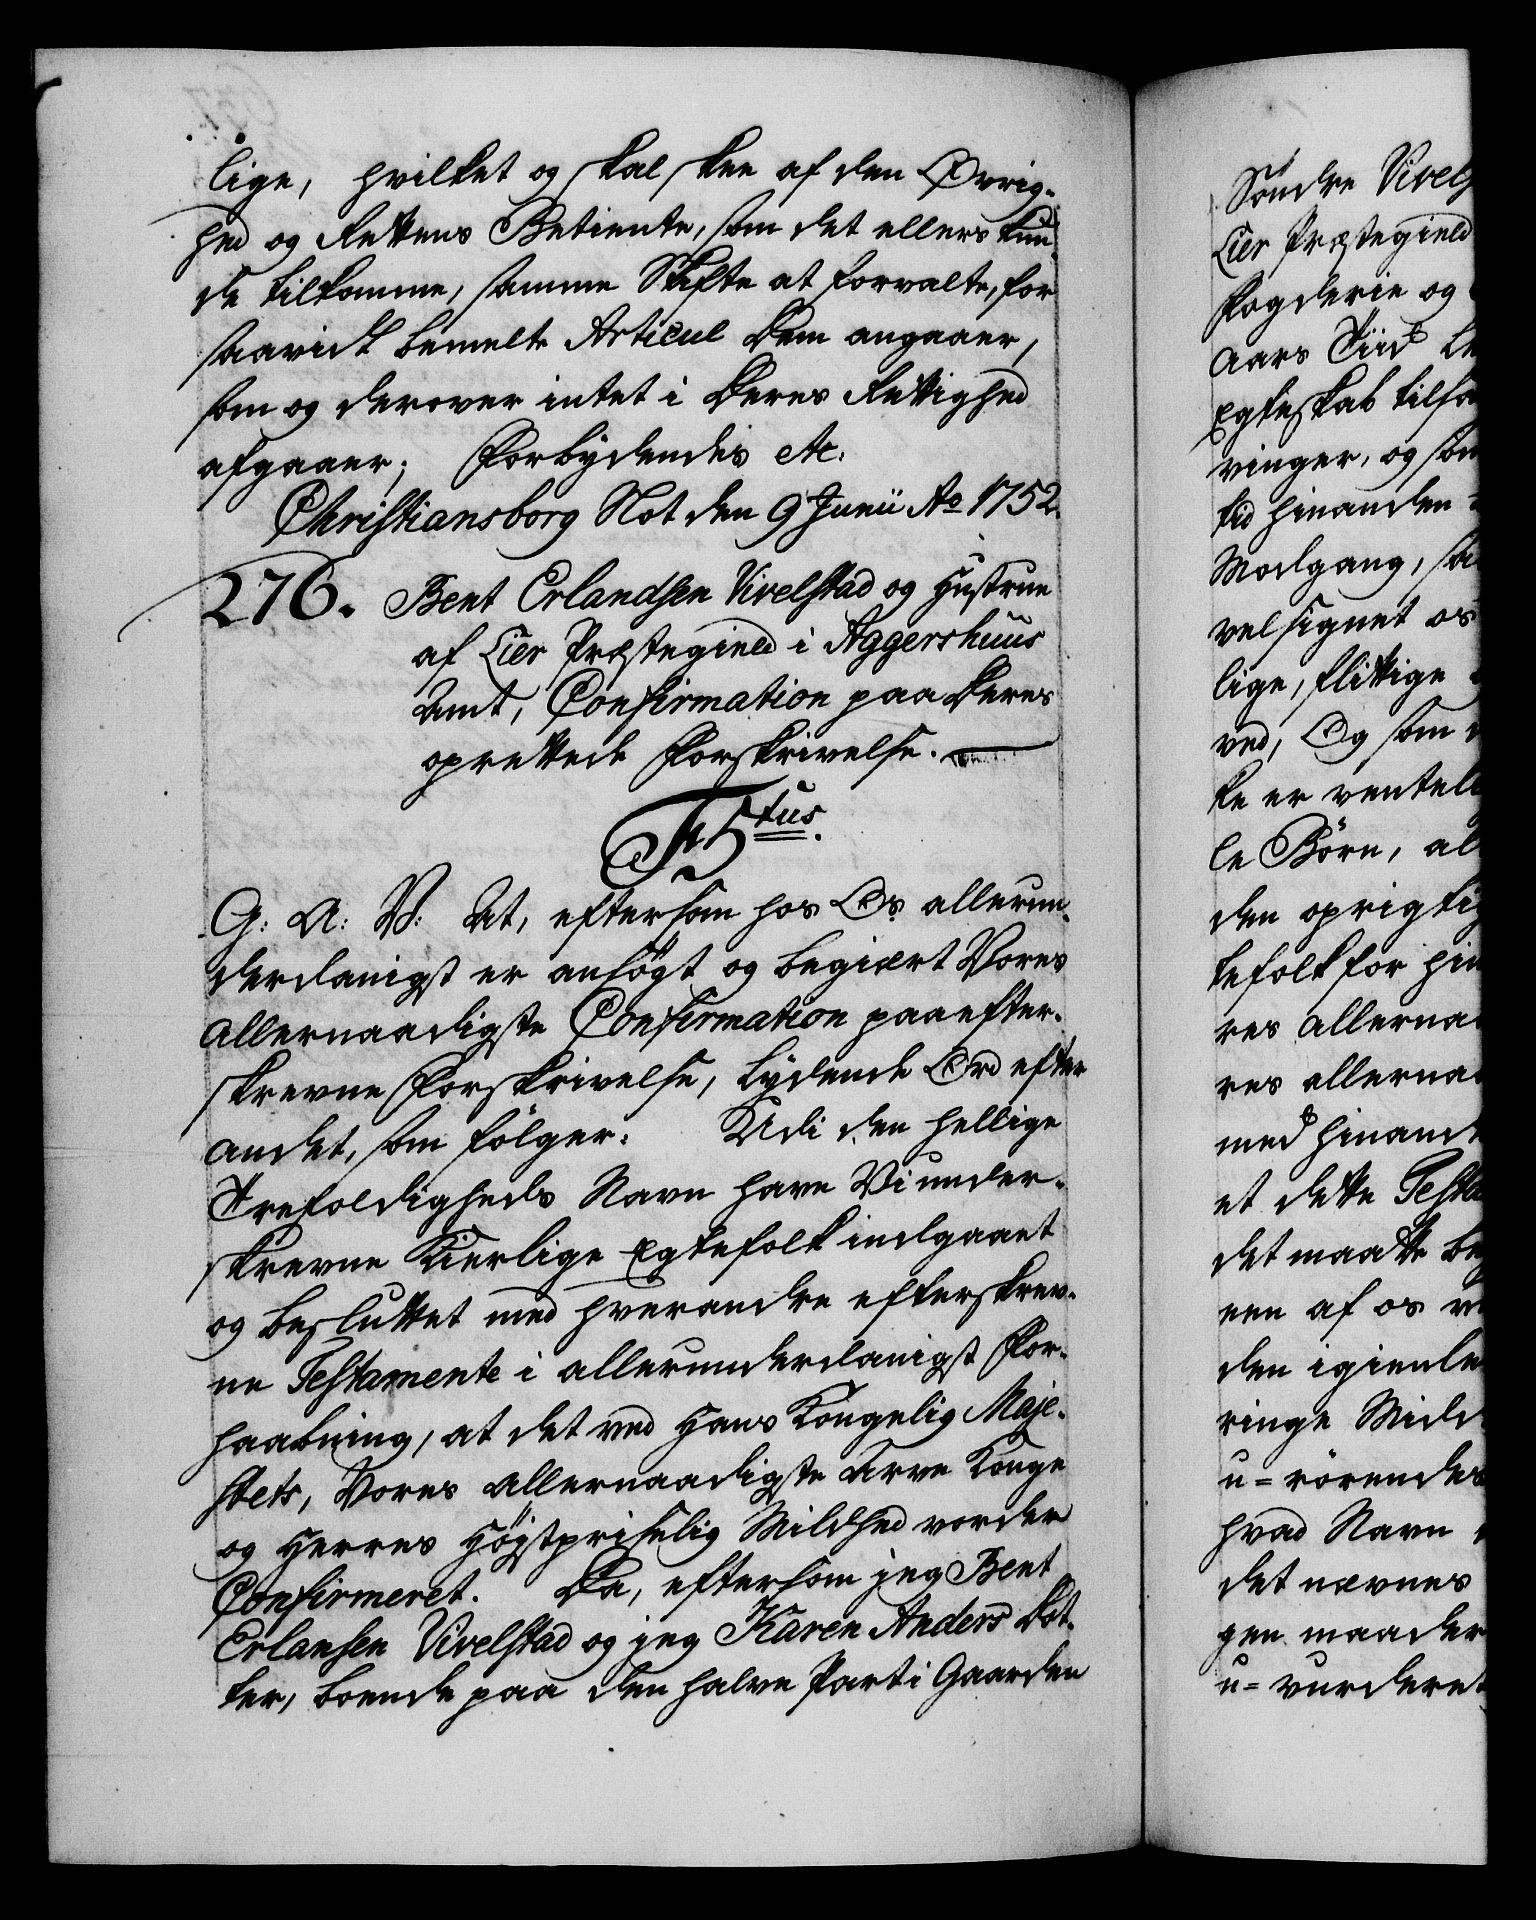 lige, hvilket og skal skee af den Øvrig-
hed og Rettens Betiente, som det ellers kun-
de tilkomme, samme Skifte at forvalte, for
saavidt bemelte Articul Dem angaaer,
som og derover intet i Deres Rettighed
afgaaer; Forbydendes &c.
Christiansborg Slot den 9 Junii Ao 1752.
276. Bent Erlandsen Vivelstad og Hustrue
af Lier Præstegield i Aggershuus
Amt, Confirmation paa Deres
oprettede Forskrivelse.
F5tus.
G: A: V: At, eftersom hos Os allerun-
derdanigst er ansøgt og begiært Vores
allernaadigste Confirmation paa efter-
skrevne Forskrivelse, lydende Ord efter
andet, som følger: Udi den hellige
Trefoldigheds Navn have Vi under-
skrevne Kierlige Egtefolk indgaaet
og besluttet med hverandre efterskrev-
ne Testamente i allerunderdanigst For-
haabning, at det ved Hans Kongelig Maje-
stets, Vores allernaadigste Arve Konge
og Herres Høystpriselig Mildhed vorder
Confirmeret. Da, eftersom jeg Bent
Erlansen Vivelstad og jeg Karen Anders Dot-
ter, boende paa den halve Part i Gaarden
Søndre Vivels
Lier Præstegield
Fogderie og
aars Tiid
Egteskab
vinger, og som
tid hinanden
Modgang, saa
velsignet os
lige, flittige
ved, Og som
ke er ventel
le Børn, al
den oprigtig
tefolk for hin
res allernaa
res allernaa
med hinand
et dette Testa
det maatte be
een af os
den igienle
ringe Mid
u=rørendes
hvad Navn
det nævnes
gen maader
u=vurderet